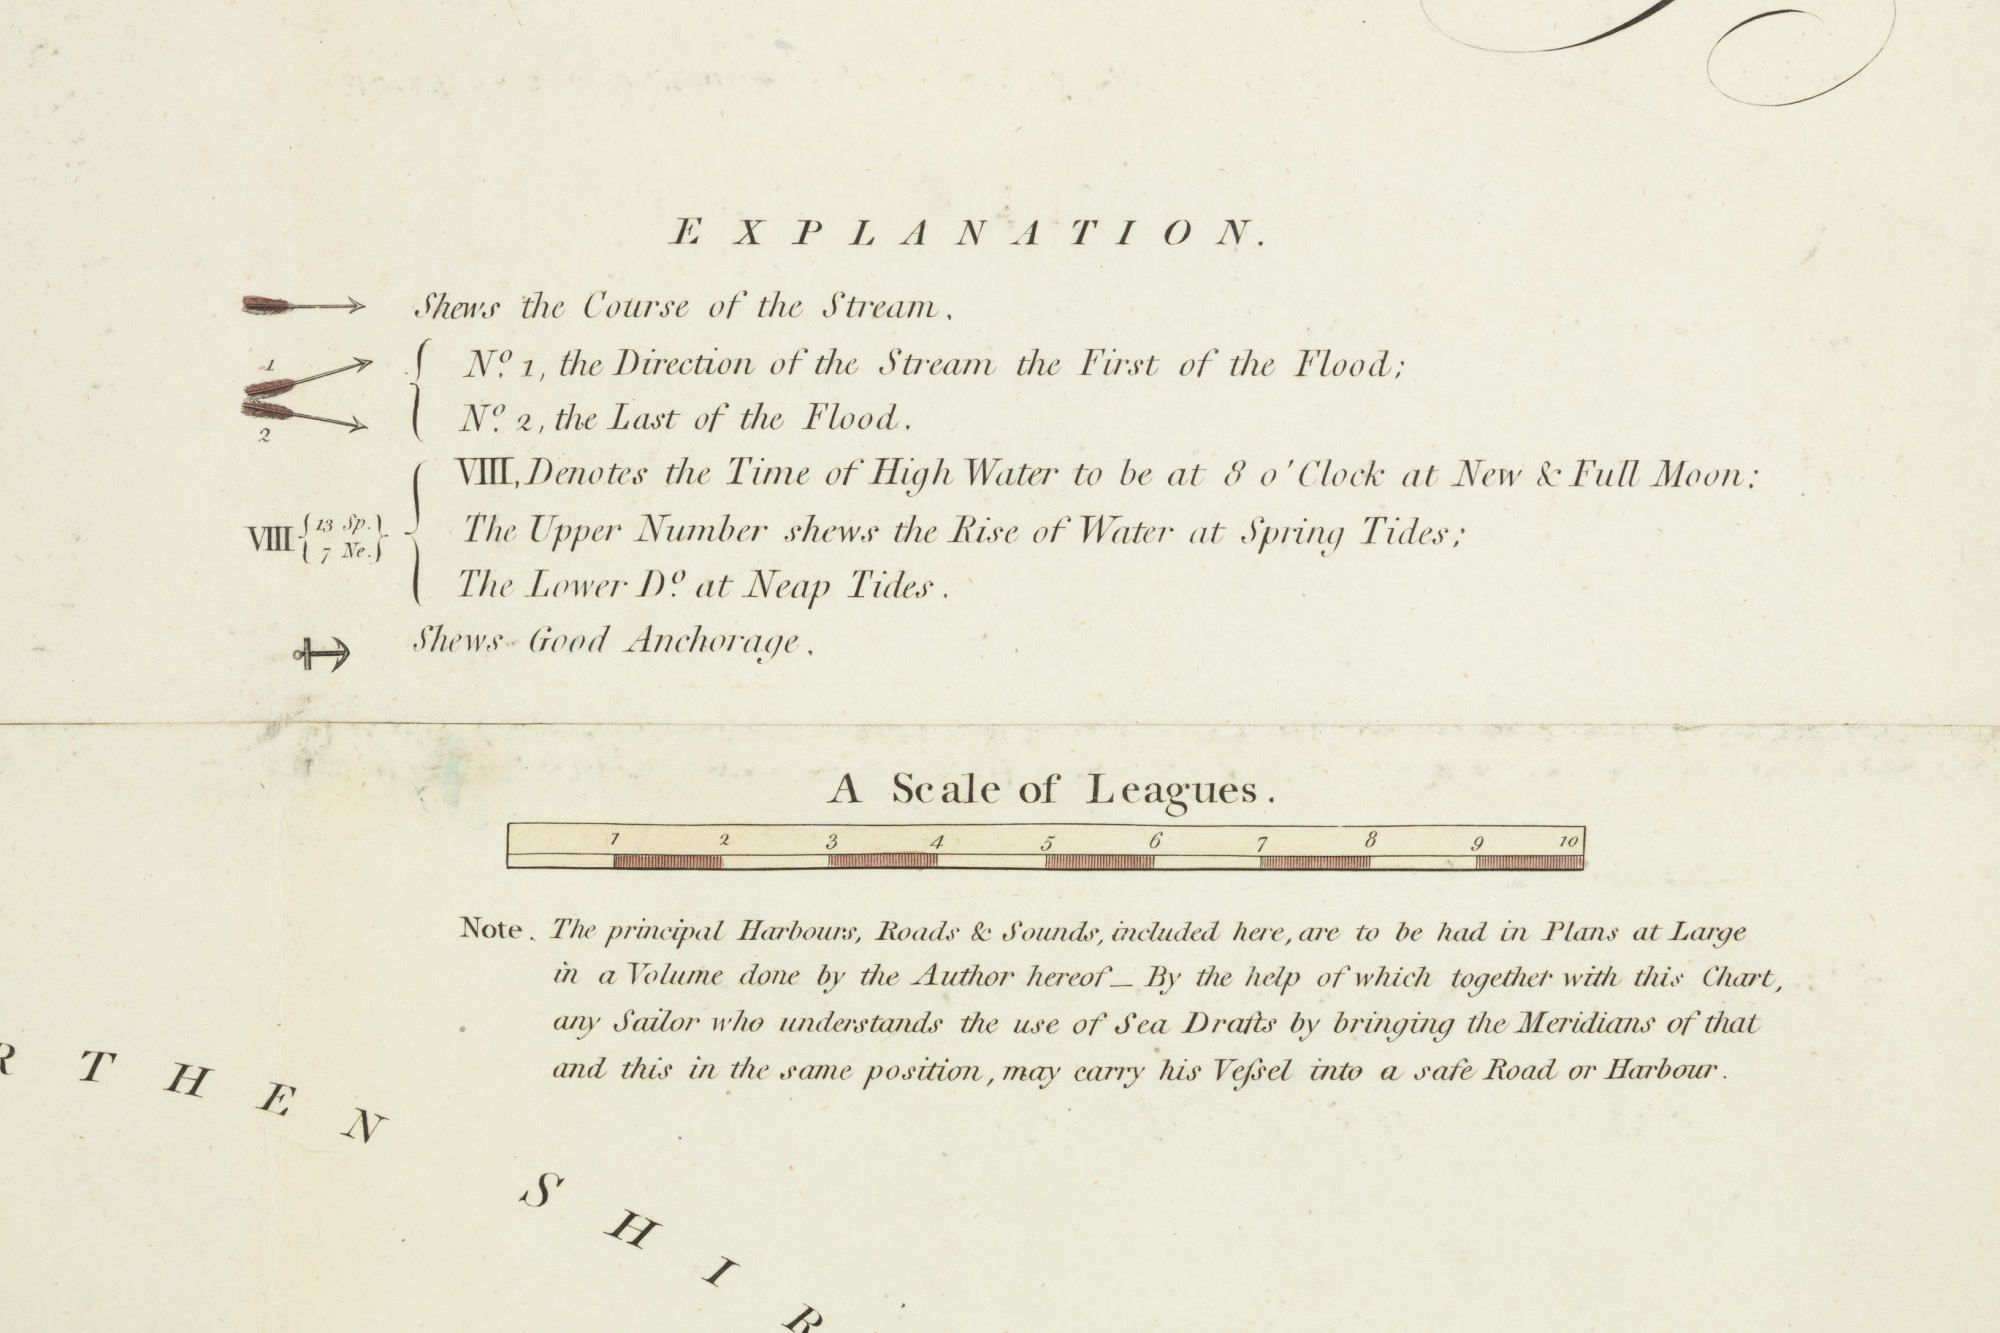 EXPLANATION.
Shews the Course of the Stream.
1
Nº. 1, the Direction of the Stream the First of the Flood;
2
Nº. 2, the Last of the Flood.
VIII, Denotes the Time of High Water to be at 8 o'Clock at New & Full Moon;
VIII { 13 Sp. }
7 Ne.
The Upper Number shews the Rise of Water at Spring Tides;
The Lower Dº. at Neap Tides.
Shews Good Anchorage.
A Scale of Leagues.
1 2 3 4 5 6 7 8 9 10
Note. The principal Harbours, Roads & Sounds, included here, are to be had in Plans at Large
in a Volume done by the Author hereof_ By the help of which together with this Chart,
any Sailor who understands the use of Sea Drafts by bringing the Meridians of that
and this in the same position, may carry his Veſsel into a safe Road or Harbour.
RTHEN SHIR